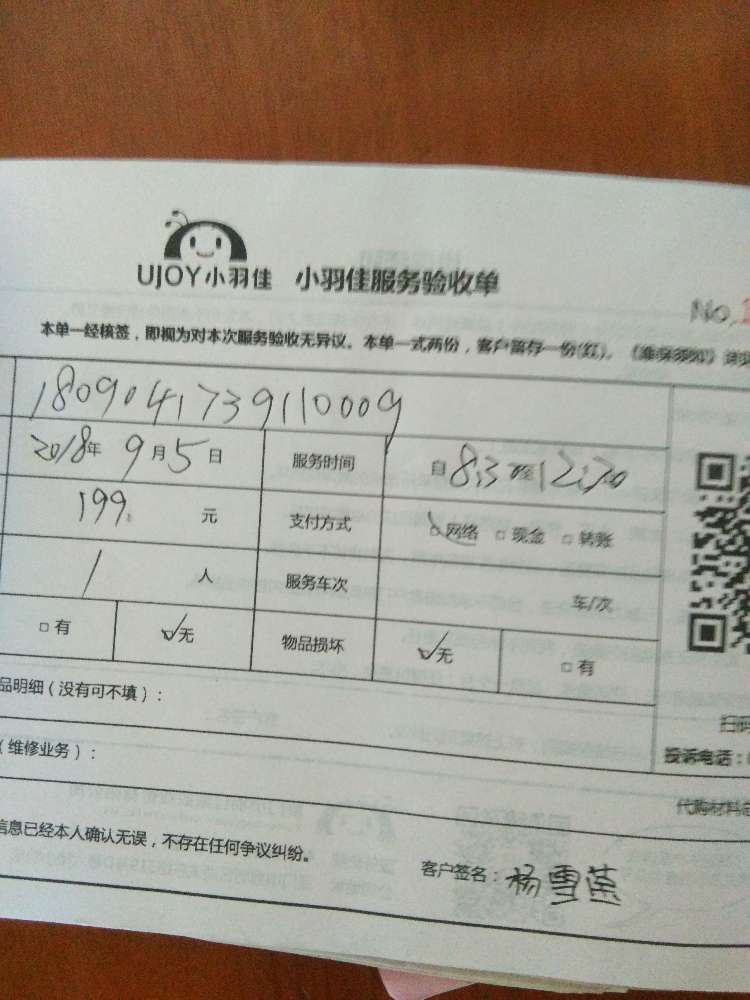 UJOY小羽佳 小羽佳服务验收单
No.
本单一经核签，即视为对本次服务验收无异议。本单一式两份，客户留存一份(红)。《维保须知》
1809041739110009
2018年9月5日 服务时间 自8:30至12:30
199. 元 支付方式 ☑网络 □现金 □转账
1 人 服务车次 车/次
□有 ☑无 物品损坏 ☑无 □有
品明细(没有可不填)：
扫码
(维修业务)：
投诉电话：
代购材料总
信息已经本人确认无误，不存在任何争议纠纷。
客户签名：杨雪